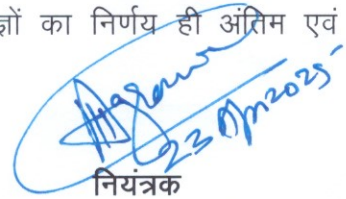 ज्ञों का निर्णय ही अंतिम एवं
23 Apr 2025
नियंत्रक